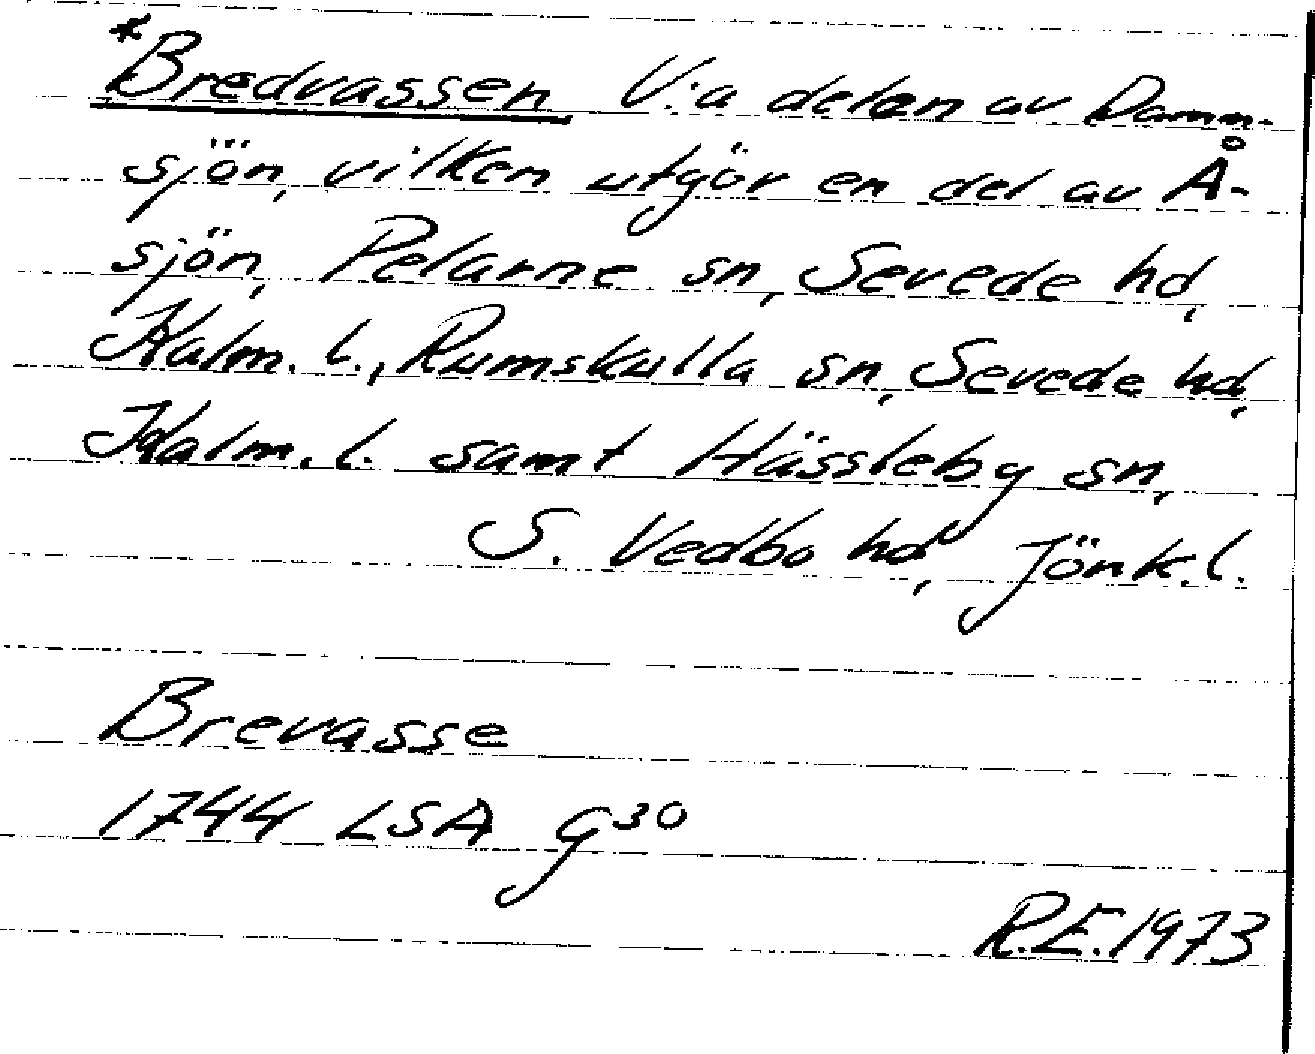 *Bredvassen V:a delen av Damm-
sjön, vilken utgör en del av Å-
sjön, Pelarne sn, Sevede hd,
Kalm. l., Rumskulla sn, Sevede hd,
Kalm. l. samt Hässleby sn,
S. Vedbo hd, Jönk. l.
Brevasse
1744 LSA G30
R.E. 1973